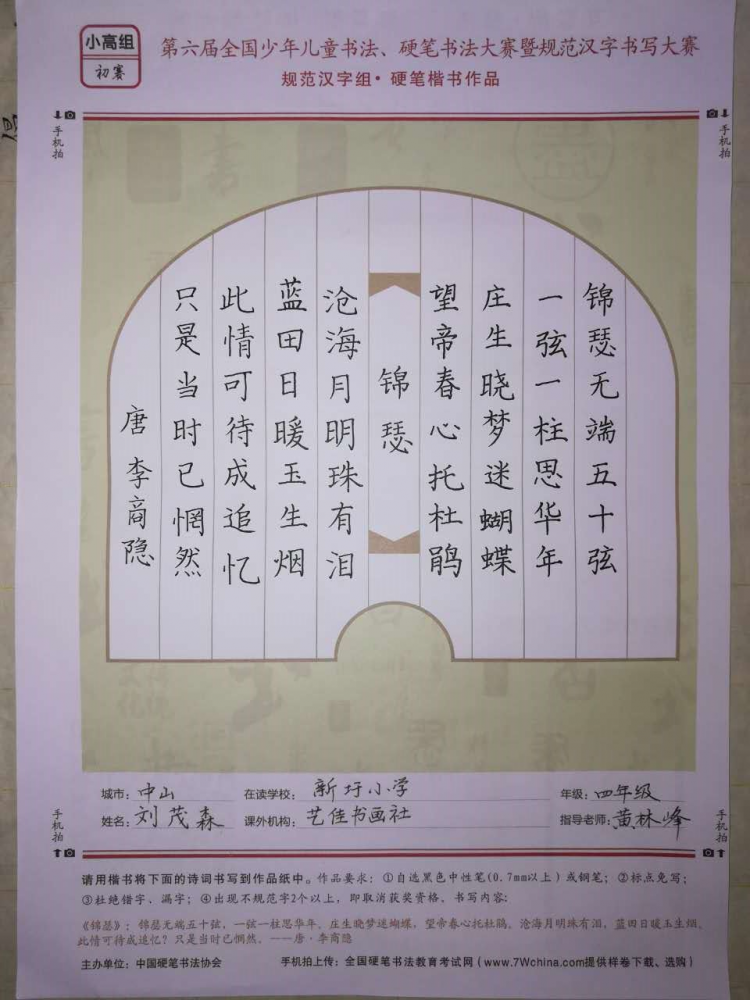 小高组
初赛
第六届全国少年儿童书法、硬笔书法大赛暨规范汉字书写大赛
规范汉字组·硬笔楷书作品
手机拍
手机拍
锦瑟无端五十弦
一弦一柱思华年
庄生晓梦迷蝴蝶
望帝春心托杜鹃
锦瑟
沧海月明珠有泪
蓝田日暖玉生烟
此情可待成追忆
只是当时已惘然
唐 李商隐
城市：中山 在读学校：新圩小学 年级：四年级
姓名：刘茂森 课外机构：艺佳书画社 指导老师：黄林峰
手机拍
手机拍
请用楷书将下面的诗词书写到作品纸中。作品要求：①自选黑色中性笔(0.7mm以上)或钢笔；②标点免写；
③杜绝错字、漏字；④出现不规范字2个以上，即取消获奖资格。书写内容：
《锦瑟》：锦瑟无端五十弦，一弦一柱思华年。庄生晓梦迷蝴蝶，望帝春心托杜鹃。沧海月明珠有泪，蓝田日暖玉生烟。
此情可待成追忆？只是当时已惘然。——唐·李商隐
主办单位：中国硬笔书法协会 手机拍上传：全国硬笔书法教育考试网（www.7Wchina.com提供样卷下载、选购）